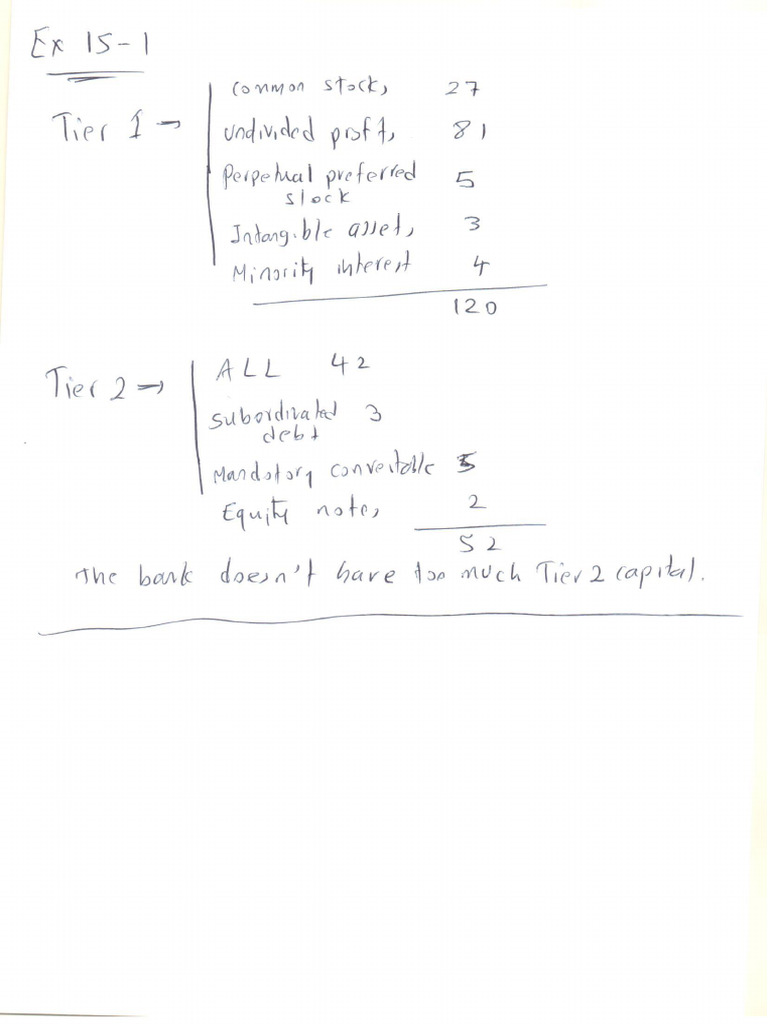 Ex 15-1
Tier 1 → common stocks 27
undivided profits 81
Perpetual preferred 5
stock
Intangible assets 3
Minority interest 4
120
Tier 2 → ALL 42
subordinated 3
debt
Mandatory convertable 5
Equity notes 2
52
The bank doesn't have too much Tier 2 capital.